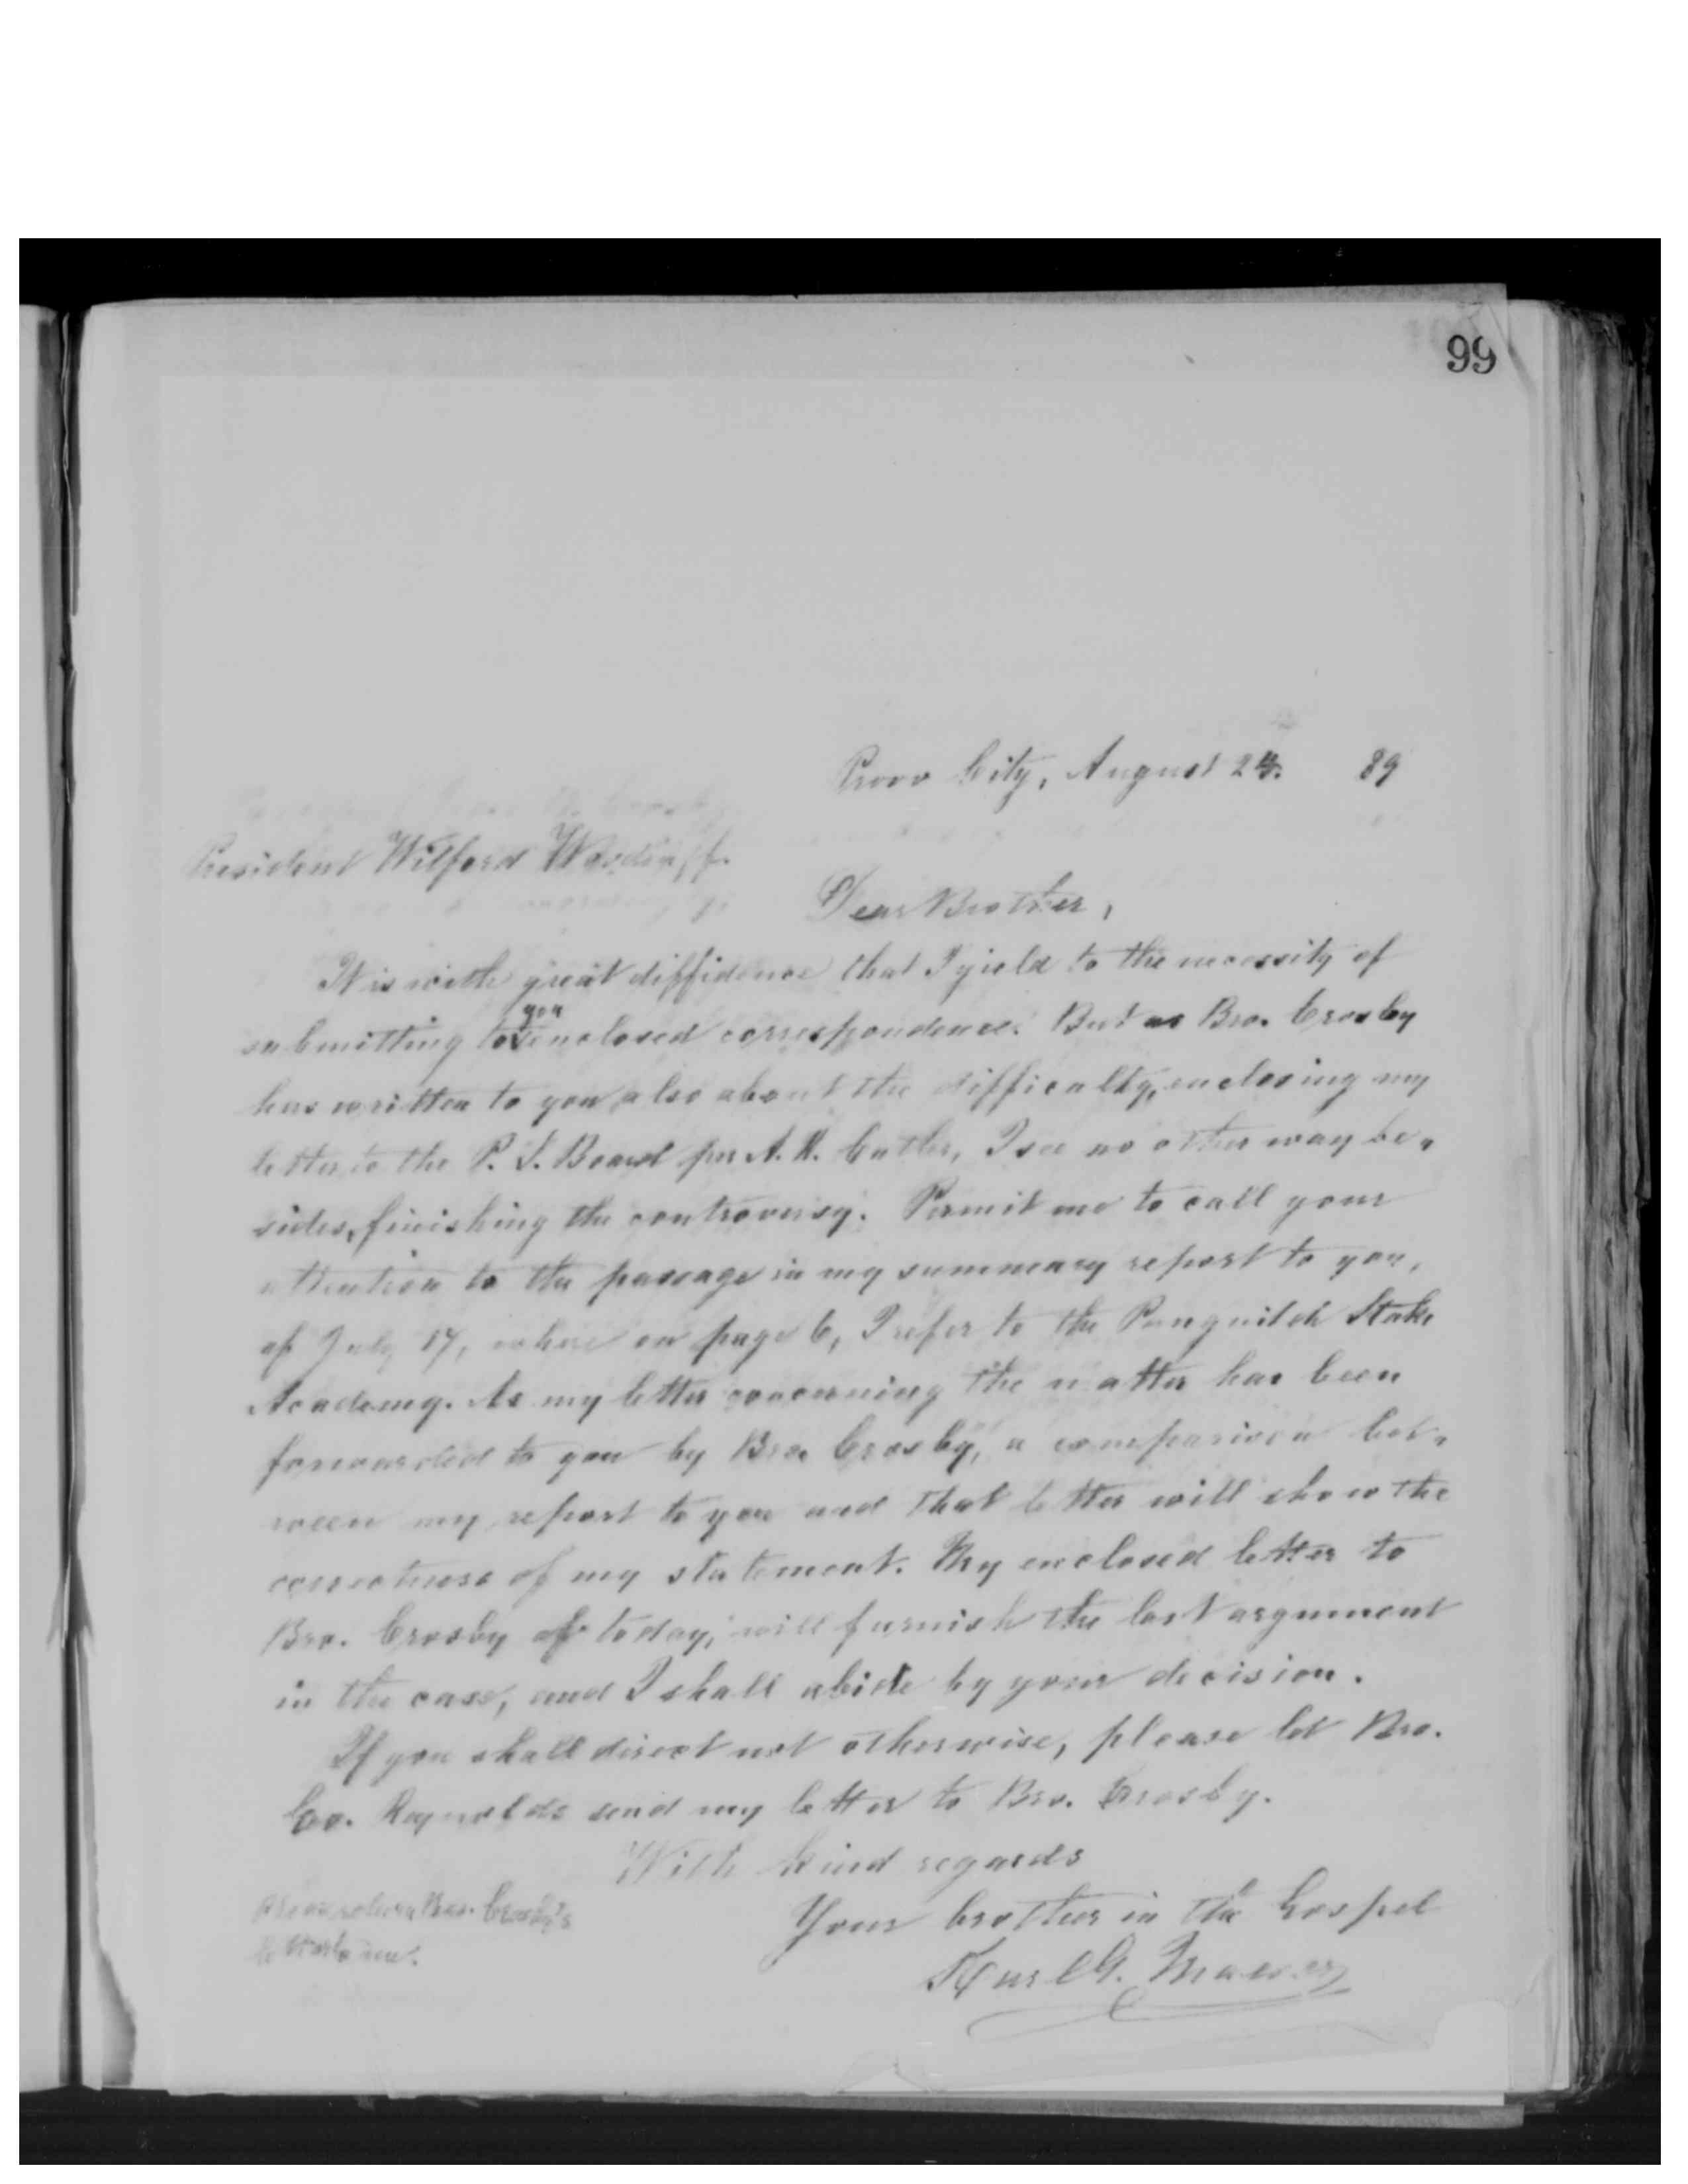 99
Provo City, August 24. 89
President Wilford Woodruff.
Dear Brother,
It is with great diffidence that I yield to the necessity of
you
submitting to enclosed correspondence. But as Bro. Crosby
has written to you also about the difficulty, enclosing my
letter to the P. S. Board per A. R. Cutler, I see no other way be-
sides, finishing the controversy. Permit me to call your
attention to the passage in my summary report to you,
of July 17, where on page 6, I refer to the Panguitch Stake
Academy. As my letter concerning the matter has been
forwarded to you by Bro. Crosby, a comparison bet-
ween my report to you and that letter will show the
correctness of my statement. My enclosed letter to
Bro. Crosby of today, will furnish the last argument
in the case, and I shall abide by your decision.
If you shall direct not otherwise, please let Bro.
Geo. Reynolds send my letter to Bro. Crosby.
With kind regards
Your brother in the Gospel
Karl G. Maeser
Please return Bro. Crosby's
letter to me.